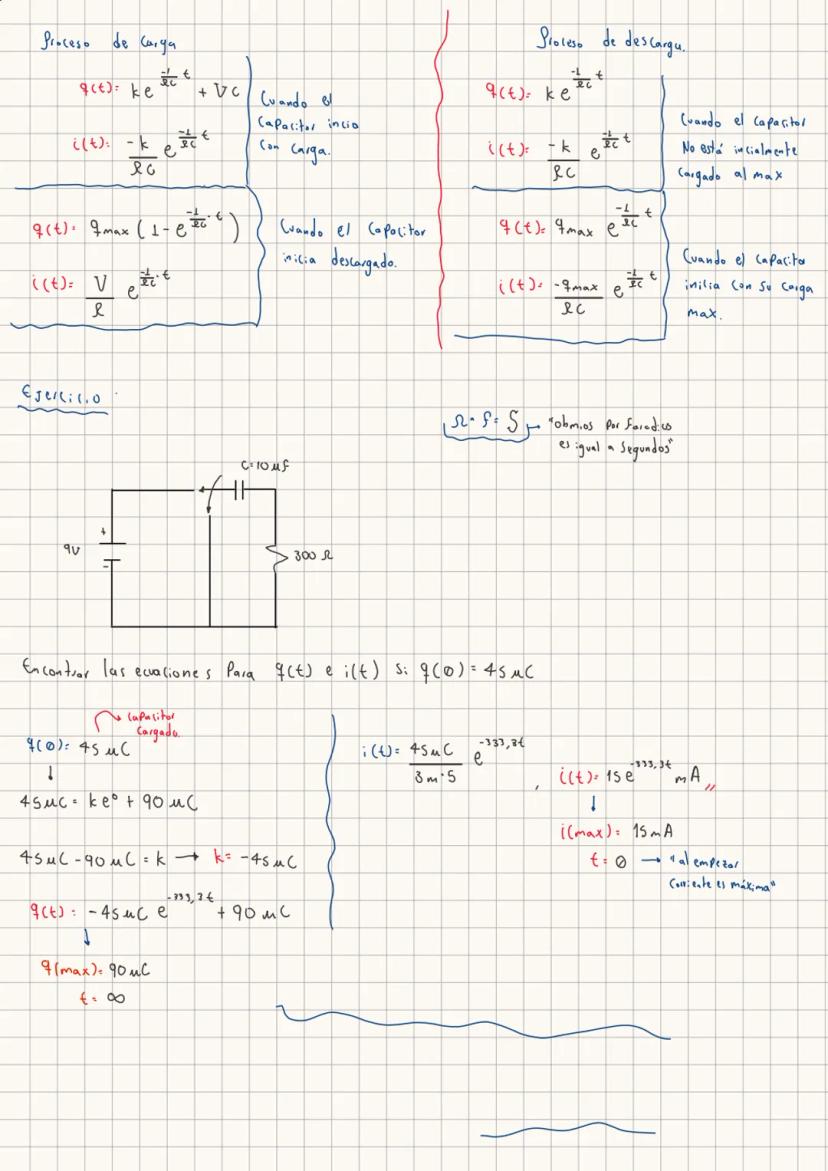 Proceso de carga
q(t)= ke^(-1/RC t) + VC
i(t)= -k/RC e^(-1/RC t)
Cuando el
Capacitor incio
con carga.
q(t)= qmax (1-e^(-1/RC·t))
i(t)= V/R e^(-1/RC·t)
Cuando el Capacitor
inicia descargado.
Proceso de descarga.
q(t)= ke^(-1/RC t)
i(t)= -k/RC e^(-1/RC t)
Cuando el capacitor
No está incialmente
cargado al max
q(t)= qmax e^(-1/RC t)
i(t)= -qmax/RC e^(-1/RC t)
Cuando el capacito
inicia con su carga
max.
Ejercicio
Ω·f= S → "ohmios por faradios
es igual a segundos"
C=10 μf
+
9V
-
300 Ω
Encontrar las ecuaciones Para q(t) e i(t) si q(0) = 45 μC
capacitor
cargado.
q(0)= 45 μC
45μC = ke⁰ + 90 μC
45μC - 90μC = k → k= -45μC
q(t)= -45μC e^(-333,3t) + 90 μC
q(max)= 90μC
t= ∞
i(t)= 45μC/3m·s e^(-333,3t) , i(t)= 15e^(-333,3t) mA
i(max)= 15mA
t= 0 → "al empezar
corriente es máxima"